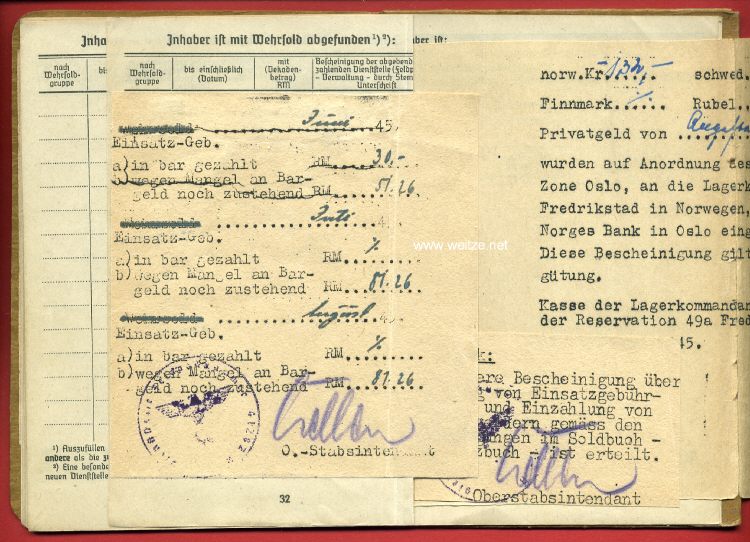 Inhaber ist mit Wehrsold abgefunden¹)²):
nach Wehrsold-
gruppe
bis
nach
Wehrsold-
gruppe
bis einschließlich
(Datum)
mit
(Dekaden-
betrag)
RM
Bescheinigung der abgebend
zahlenden Dienststelle (Feldp
- Verwaltung - durch Stem
Unterschrift
Juni 45.
Einsatz-Geb.
a) in bar gezahlt RM 30,-
b) wegen Mangel an Bar-
geld noch zustehend RM 51.26
Juli 4
Einsatz-Geb.
a) in bar gezahlt RM %
b) wegen Mangel an Bar-
geld noch zustehend RM 81.26
August 45.
Einsatz-Geb.
a) in bar gezahlt RM %
b) wegen Mangel an Bar-
geld noch zustehend RM 81.26
O.-Stabsintendant
¹) Auszufüllen
andere als die zu
²) Eine besonde
neuen Dienststelle
32
ber ist:
norw.Kr. 132,- schwed
Finnmark Rubel
Privatgeld von
wurden auf Anordnung des
Zone Oslo, an die Lagerk
Fredrikstad in Norwegen,
Norges Bank in Oslo eing
Diese Bescheinigung gilt
gütung.
Kasse der Lagerkommandan
der Reservation 49a Fred
45.
k:
ere Bescheinigung über
g von Einsatzgebühr-
und Einzahlung von
dern gemäss den
ungen im Soldbuch -
zbuch - ist erteilt.
Oberstabsintendant
www.weitze.net